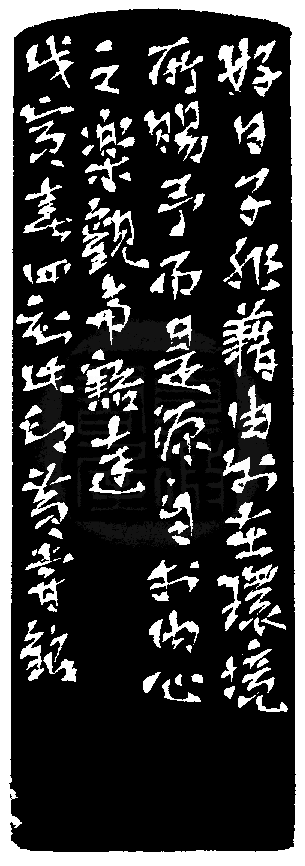 好日子非藉由外在環境
所賜予而是源自於內心
之樂觀和豁達
戊寅春四記此印黃嘗銘